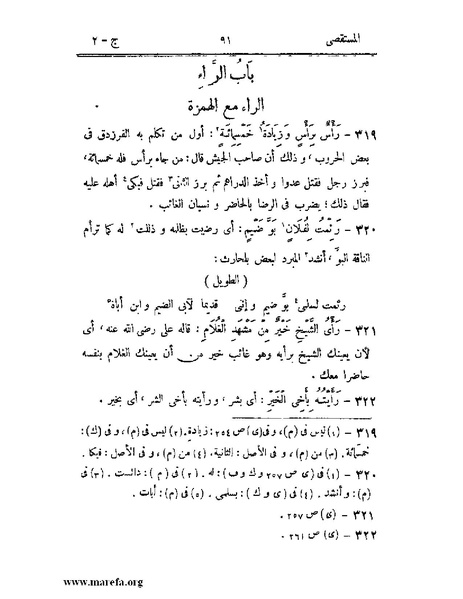 المستقصى ٩١ ج - ٢
بَابُ الرَّاءِ
الراء مع الهمزة
٣١٩ - رَأْسٌ بِرَأْسٍ وَزِيَادَةُ١ خَمْسِمِائَةٍ٢: أول من تكلم به الفرزدق فى
بعض الحروب، وذلك أن صاحب الجيش قال: من جاء برأس فله خمسمائة،
فبرز رجل فقتل عدوا و أخذ الدراهم ثم برز الثانى٣ فقتل فبكى٤ أهله عليه
فقال ذلك؛ يضرب فى الرضا بالحاضر و نسيان الغائب .
٣٢٠ - رَئِمْتُ لِفُلَانٍ١ بَوَّ ضَيْمٍ: أى رضيت بظلمه و ذللت٢ له كما ترأم
الناقة البوَّ، أنشد٣ المبرد لبعض بلحارث:
( الطويل )
رئمت لسلمى٤ بوَّ ضيم و إننى قديما لآبى الضيم و ابن أباة٥
٣٢١ - رَأْىُ الشَّيْخِ خَيْرٌ مِنْ مَشْهَدِ الْغُلَامِ: قاله على رضى الله عنه، أى
لأن يعينك الشيخ برأيه وهو غائب خير من أن يعينك الغلام بنفسه
حاضرا معك .
٣٢٢ - رَأَيْتُهُ بِأَخِى الْخَيْرِ: أى بشر، و رأيته بأخى الشر، أى بخير .
٣١٩ - (١) ليس فى (م)، و فى (ى) ص ٢٥٤: زيادة. (٢) ليس فى (م)، و فى (ك):
خمسمائة. (٣) من (م)، و فى الأصل: الثانية. (٤) من (م)، و فى الأصل: فبكا.
٣٢٠ - (١) فى (ى ص ٢٥٧ و ك و ف): له. (٢) فى (م): دانست. (٣) فى
(م): و أنشد. (٤) فى (ى و ك): بسلمى. (٥) فى (م): أبات.
٣٢١ - (ى) ص ٢٥٧ .
٣٢٢ - (ى) ص ٢٦١ .
www.marefa.org